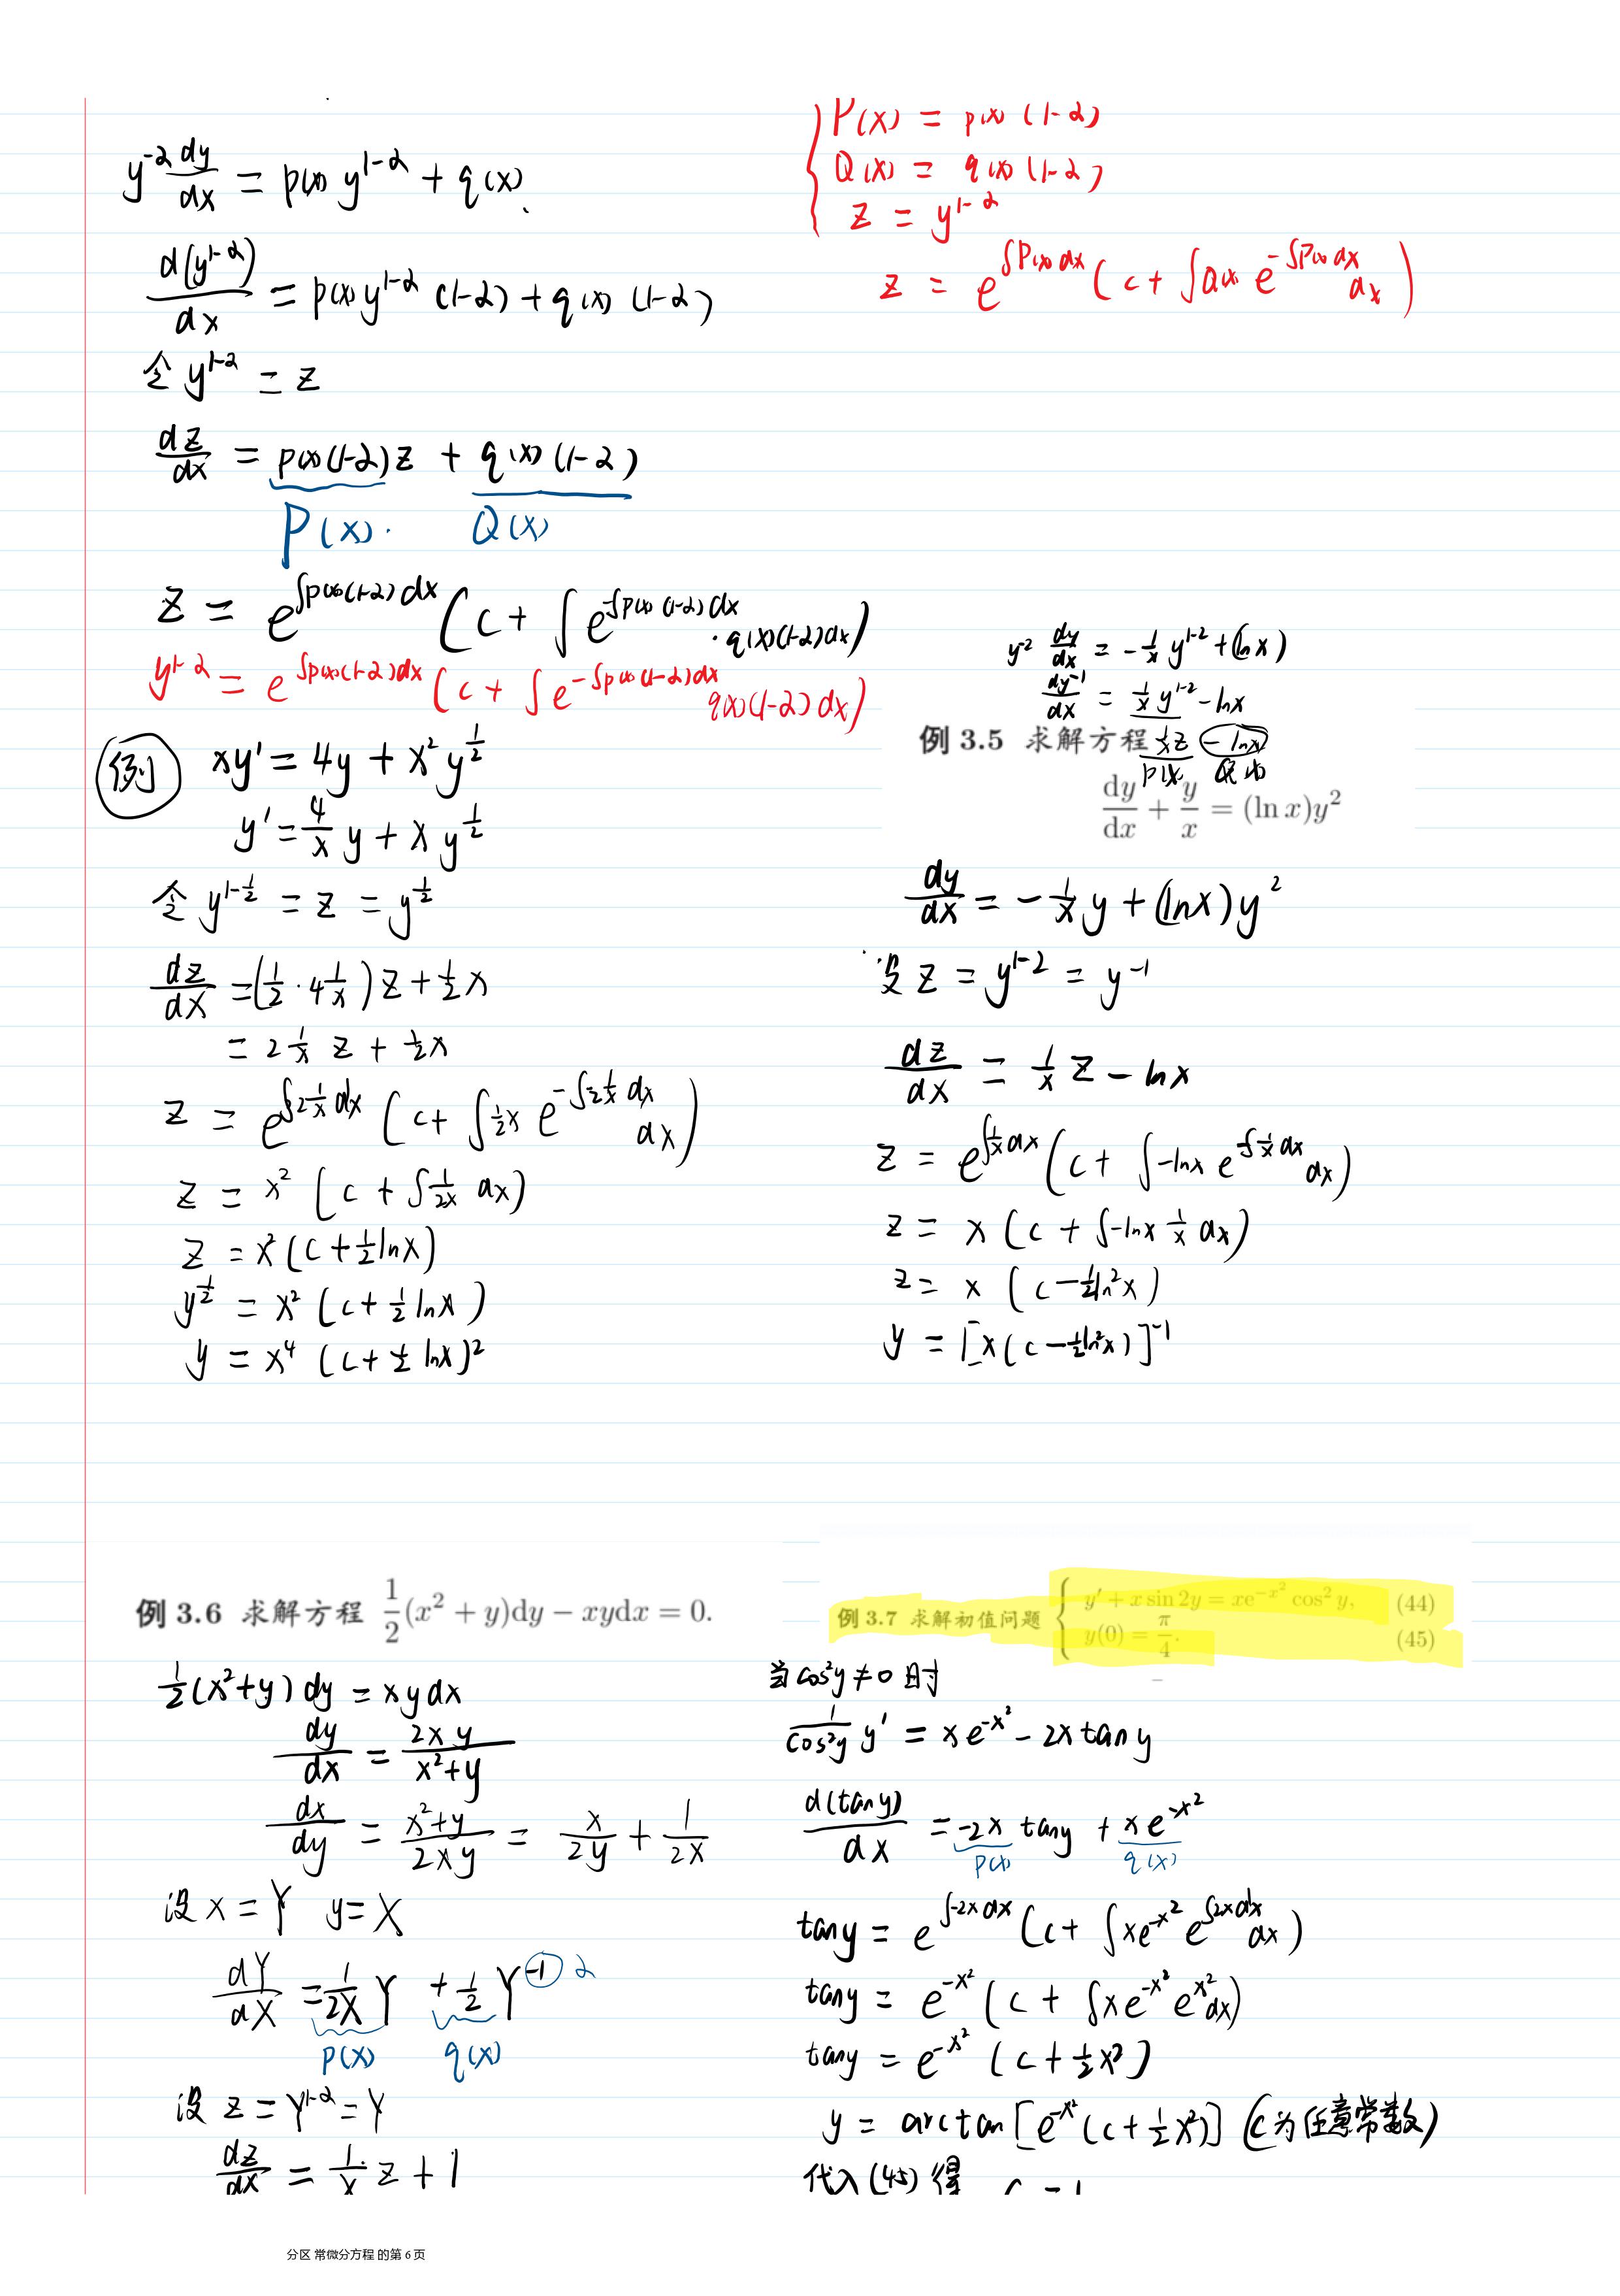 y^{-α} dy/dx = p(x) y^{1-α} + q(x).
d(y^{1-α})/dx = p(x) y^{1-α} (1-α) + q(x) (1-α)
令 y^{1-α} = z
dz/dx = p(x)(1-α) z + q(x) (1-α)
P(x). Q(x)
z = e^{∫p(x)(1-α)dx} (c + ∫ e^{-∫p(x)(1-α)dx} · q(x)(1-α)dx)
y^{1-α} = e^{∫p(x)(1-α)dx} (c + ∫ e^{-∫p(x)(1-α)dx} q(x)(1-α)dx)
{ P(x) = p(x) (1-α)
Q(x) = q(x) (1-α)
z = y^{1-α}
z = e^{∫P(x)dx} (c + ∫Q(x) e^{-∫P(x)dx} dx)
例 xy' = 4y + x² y^{1/2}
y' = 4/x y + x y^{1/2}
令 y^{1-1/2} = z = y^{1/2}
dz/dx = (1/2 · 4 1/x) z + 1/2 x
= 2 1/x z + 1/2 x
z = e^{∫2 1/x dx} (c + ∫ 1/2 x e^{-∫2 1/x dx} dx)
z = x² (c + ∫ 1/2x dx)
z = x² (c + 1/2 ln x)
y^{1/2} = x² (c + 1/2 ln x)
y = x⁴ (c + 1/2 ln x)²
y^{-2} dy/dx = -1/x y^{1-2} + (ln x)
dy^{-1}/dx = 1/x y^{1-2} - ln x
例 3.5 求解方程 1/x z - ln x
p(x) Q(x)
dy/dx + y/x = (ln x)y²
dy/dx = -1/x y + (ln x) y²
设 z = y^{1-2} = y^{-1}
dz/dx = 1/x z - ln x
z = e^{∫1/x dx} (c + ∫-ln x e^{-∫1/x dx} dx)
z = x (c + ∫-ln x 1/x dx)
z = x (c - 1/2 ln²x)
y = [x(c - 1/2 ln²x)]^{-1}
例 3.6 求解方程 1/2(x² + y)dy − xydx = 0.
1/2(x²+y) dy = xy dx
dy/dx = 2xy/x²+y
dx/dy = x²+y/2xy = x/2y + 1/2x
设 x = Y y = X
dY/dX = 1/2X Y + 1/2 Y^{-1} α
p(X) q(X)
设 z = Y^{1-α} = Y
dz/dx = 1/x z + 1
例 3.7 求解初值问题 { y′ + x sin 2y = xe^{−x²} cos² y, (44)
y(0) = π/4. (45)
当 cos²y ≠ 0 时
1/cos²y y' = xe^{-x²} - 2x tan y
d(tan y)/dx = -2x tan y + xe^{-x²}
p(x) q(x)
tan y = e^{∫-2x dx} (c + ∫xe^{-x²} e^{∫2x dx} dx)
tan y = e^{-x²} (c + ∫xe^{-x²} e^{x²} dx)
tan y = e^{-x²} (c + 1/2 x²)
y = arctan [e^{-x²} (c + 1/2 x²)] (c为任意常数)
代入 (45) 得 c = 1
分区 常微分方程 的第 6 页